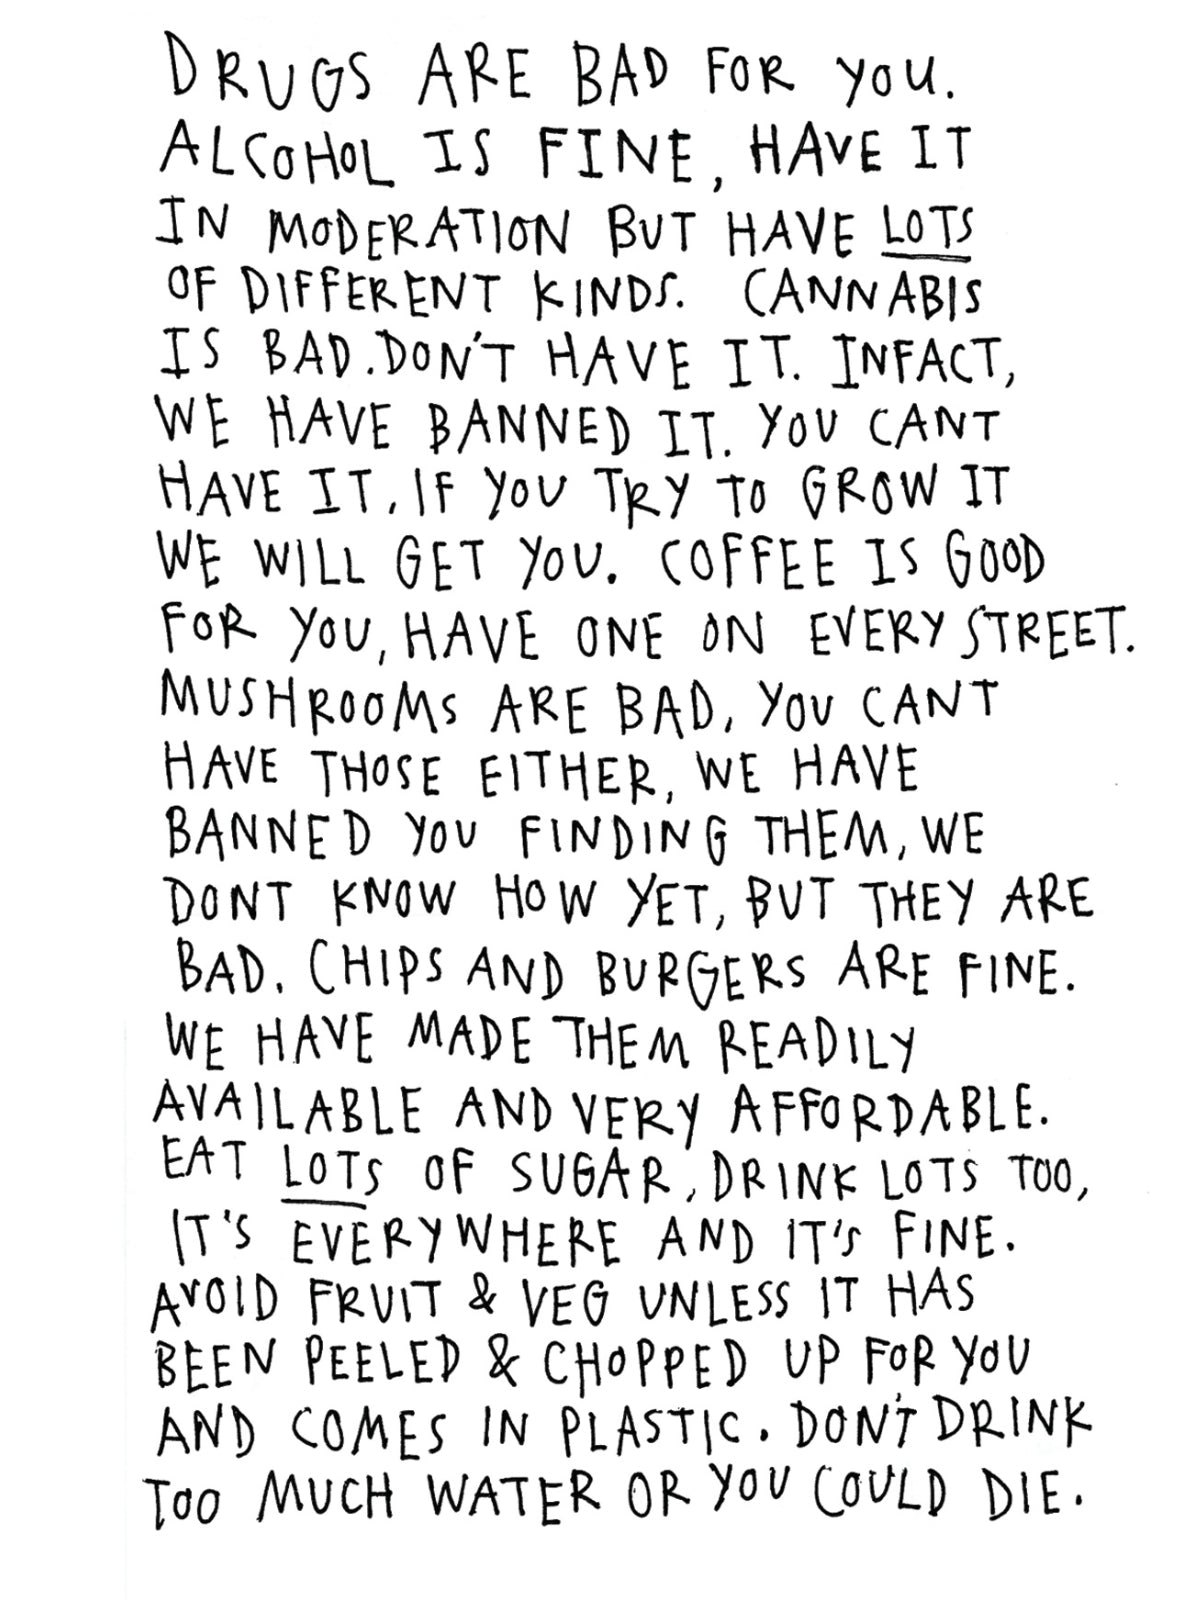 DRUGS ARE BAD FOR YOU.
ALCOHOL IS FINE, HAVE IT
IN MODERATION BUT HAVE LOTS
OF DIFFERENT KINDS. CANNABIS
IS BAD. DON'T HAVE IT. INFACT,
WE HAVE BANNED IT. YOU CANT
HAVE IT. IF YOU TRY TO GROW IT
WE WILL GET YOU. COFFEE IS GOOD
FOR YOU, HAVE ONE ON EVERY STREET.
MUSHROOMS ARE BAD, YOU CANT
HAVE THOSE EITHER, WE HAVE
BANNED YOU FINDING THEM, WE
DONT KNOW HOW YET, BUT THEY ARE
BAD. CHIPS AND BURGERS ARE FINE.
WE HAVE MADE THEM READILY
AVAILABLE AND VERY AFFORDABLE.
EAT LOTS OF SUGAR, DRINK LOTS TOO,
IT'S EVERYWHERE AND IT'S FINE.
AVOID FRUIT & VEG UNLESS IT HAS
BEEN PEELED & CHOPPED UP FOR YOU
AND COMES IN PLASTIC. DON'T DRINK
TOO MUCH WATER OR YOU COULD DIE.